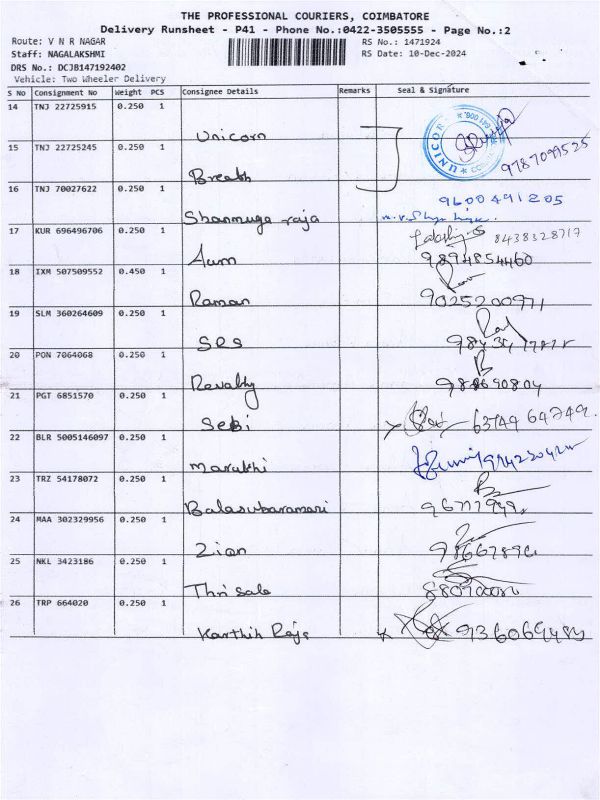 THE PROFESSIONAL COURIERS, COIMBATORE
Delivery Runsheet - P41 - Phone No.:0422-3505555 - Page No.:2
Route: V N R NAGAR RS No.: 1471924
Staff: NAGALAKSHMI RS Date: 10-Dec-2024
DRS No.: DCJB147192402
Vehicle: Two Wheeler Delivery
S No Consignment No Weight PCS Consignee Details Remarks Seal & Signature
14 TNJ 22725915 0.250 1
Unicorn
15 TNJ 22725245 0.250 1
UNICORN
9787099525
Breath
16 TNJ 70027622 0.250 1
9600491205
Shanmuga raja
17 KUR 696496706 0.250 1
8438328717
Aum 9894854460
18 IXM 507509552 0.450 1
Raman 9025200971
19 SLM 360264609 0.250 1
SES
20 PON 7064068 0.250 1
Revathy
21 PGT 6851570 0.250 1
Sebi
22 BLR 5005146097 0.250 1
23 TRZ 54178072 0.250 1
24 MAA 302329956 0.250 1
Zion
25 NKL 3423186 0.250 1
26 TRP 664020 0.250 1
Karthik Raja